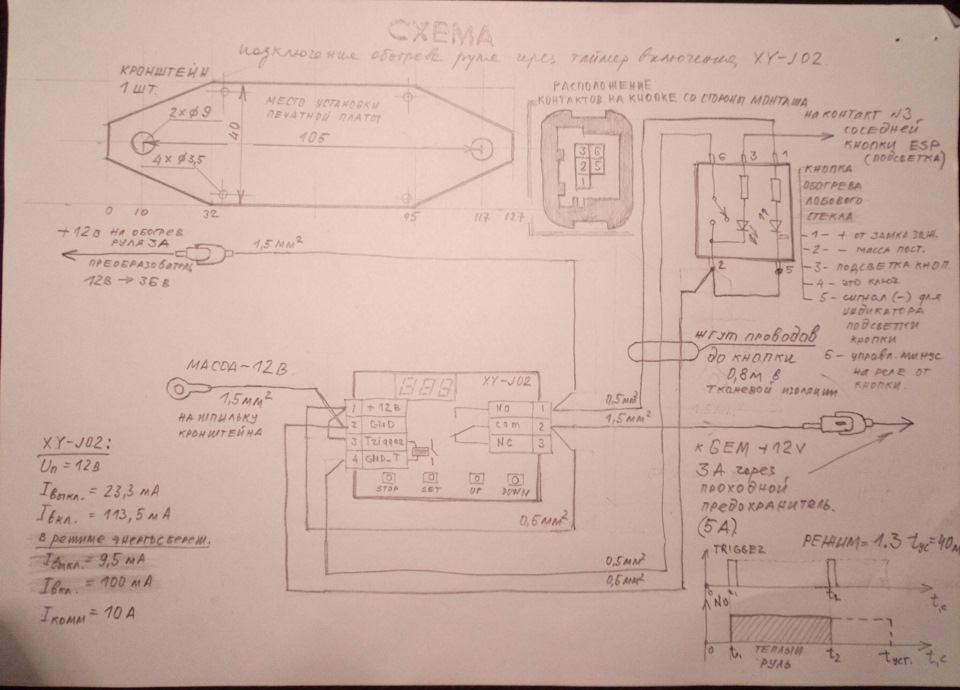 СХЕМА
подключения обогрева руля через таймер включения XY-J02
КРОНШТЕЙН
1 ШТ.
2×Ф9
4×Ф3,5
МЕСТО УСТАНОВКИ
ПЕЧАТНОЙ ПЛАТЫ
105
40
0 10 32 95 117 127
РАСПОЛОЖЕНИЕ
КОНТАКТОВ НА КНОПКЕ СО СТОРОНЫ МОНТАЖА
3 6
2 5
1
НА КОНТАКТ №3
СОСЕДНЕЙ
КНОПКИ ESP
(ПОДСВЕТКА)
6 3 1
2 5
КНОПКА
ОБОГРЕВА
ЛОБОВОГО
СТЕКЛА
1 - + ОТ ЗАМКА ЗАЖ.
2 - - МАССА ПОСТ.
3 - ПОДСВЕТКА КНОП.
4 - ЭТО КЛЮЧ
5 - СИГНАЛ (-) ДЛЯ
ИНДИКАТОРА
ПОДСВЕТКИ
КНОПКИ
6 - УПРАВЛ. МИНУС
НА РЕЛЕ ОТ
КНОПКИ.
+12В НА ОБОГРЕВ
РУЛЯ 3А
ПРЕОБРАЗОВАТЕЛЬ
12В → 36В
1,5 мм²
ЖГУТ ПРОВОДОВ
ДО КНОПКИ
0,8м В
ТКАНЕВОЙ ИЗОЛЯЦИИ
МАССА -12В
1,5 мм²
НА ШПИЛЬКУ
КРОНШТЕЙНА
888 XY-J02
1 +12В
2 GND
3 Trigger
4 GND_T
NO 1
com 2
NC 3
STOP SET UP DOWN
0,5 мм²
1,5 мм²
0,6 мм²
0,5 мм²
0,6 мм²
К GEM +12V
3А через
ПРОХОДНОЙ
ПРЕДОХРАНИТЕЛЬ.
(5А)
XY-J02:
Uп = 12В
Iвыкл. = 23,3 мА
Iвкл. = 113,5 мА
В РЕЖИМЕ ЭНЕРГОСБЕРЕЖ.
Iвыкл. = 9,5 мА
Iвкл. = 100 мА
Iкомм = 10 А
РЕЖИМ = 1.3 tус = 40м
TRIGGER
0 t1 t2 t,c
NO
0 t1 ТЕПЛЫЙ РУЛЬ t2 tуст. t,c